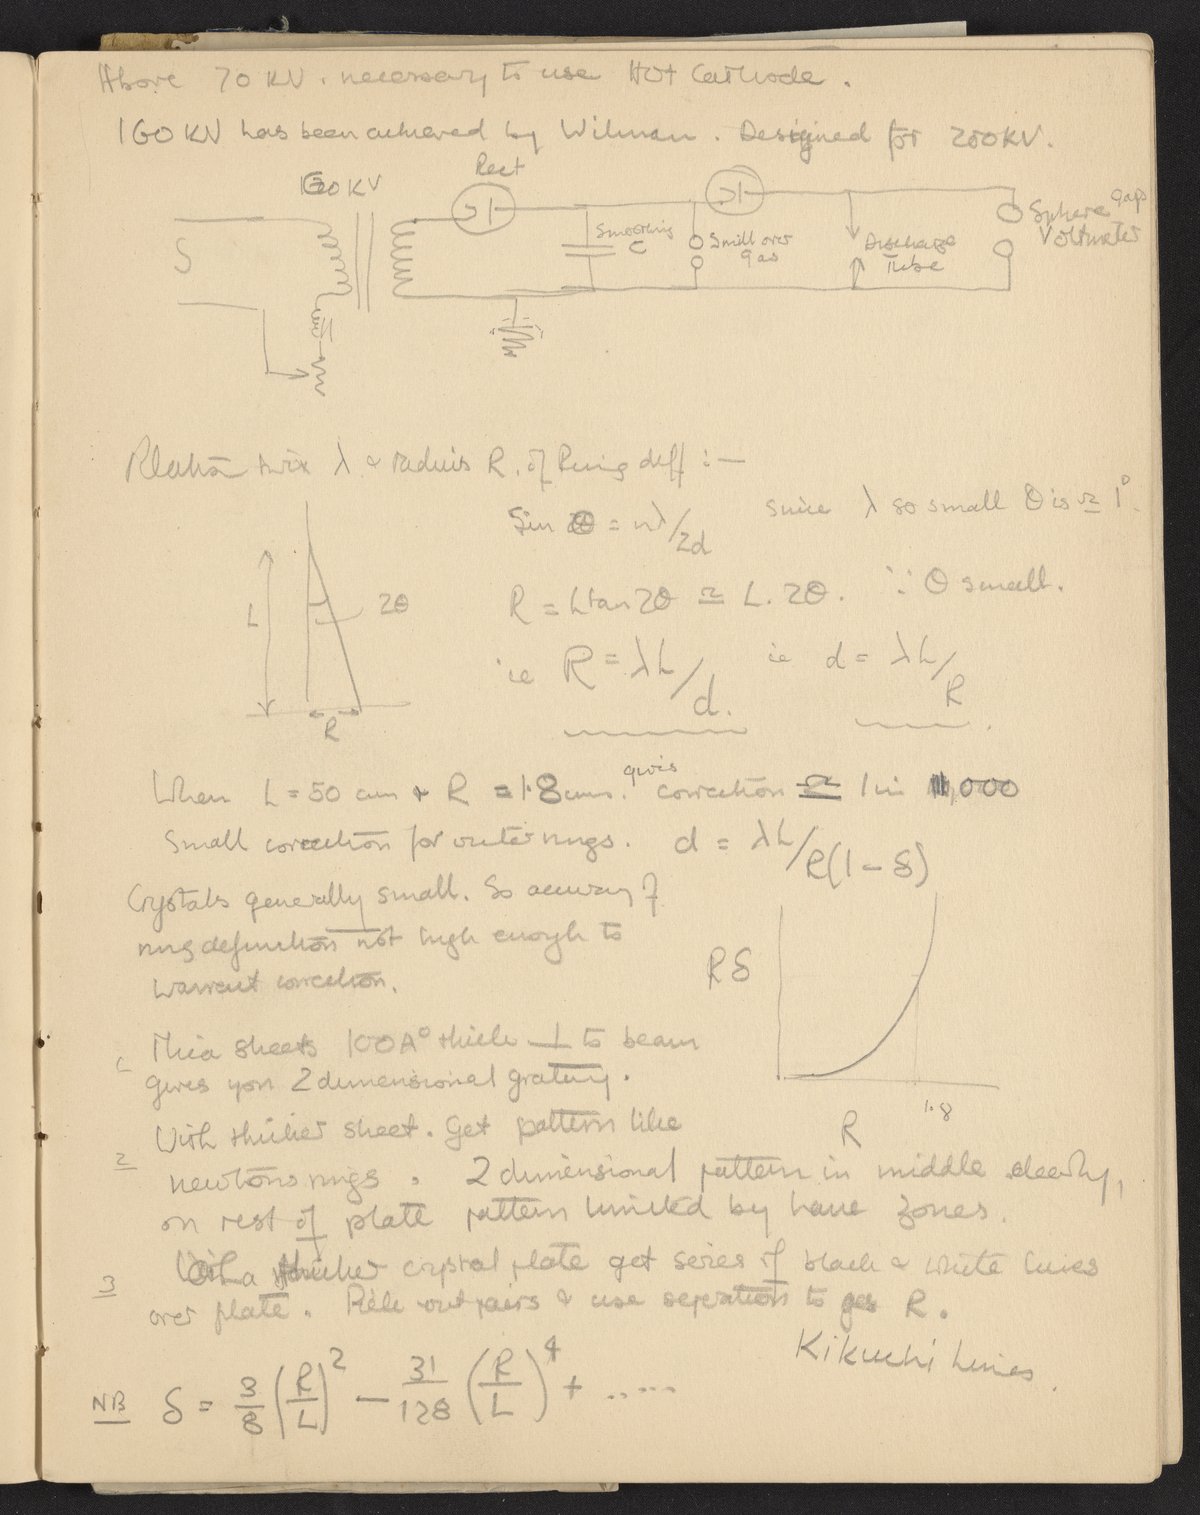 Above 70 KV. necessary to use Hot Cathode.
160 KV has been achieved by Wilman. Designed for 200KV.
Rect
KV
S
Smoothing C
Spill over gap
Discharge Tube
Sphere gaps Voltmeter
Relation twix λ & radius R. of Ring diff :—
Sin θ = nλ/2d
since λ so small θ is ≃ 1°.
L
2θ
R
R = L tan 2θ ≃ L. 2θ. ∵ θ small.
ie R = λL/d.
ie d = λL/R.
When L = 50 cm & R = 1.8 cms. gives correction ≃ 1 in 1,000
Small correction for outer rings. d = λL/R(1 – δ)
Crystals generally small. So accuracy of
ring definition not high enough to
warrant correction.
Rδ
1.8
R
1 Mica sheets 100A° thick ⊥ to beam
gives you 2 dimensional grating.
2 With thicker sheet. Get pattern like
newtons rings. 2 dimensional pattern in middle clearly,
on rest of plate pattern limited by Laue zones.
3 With a thicker crystal plate get series of black & white lines
over plate. Pick out pairs & use separation to get R.
Kikuchi Lines.
NB δ = 3/8 (R/L)² – 31/128 (R/L)⁴ + .....